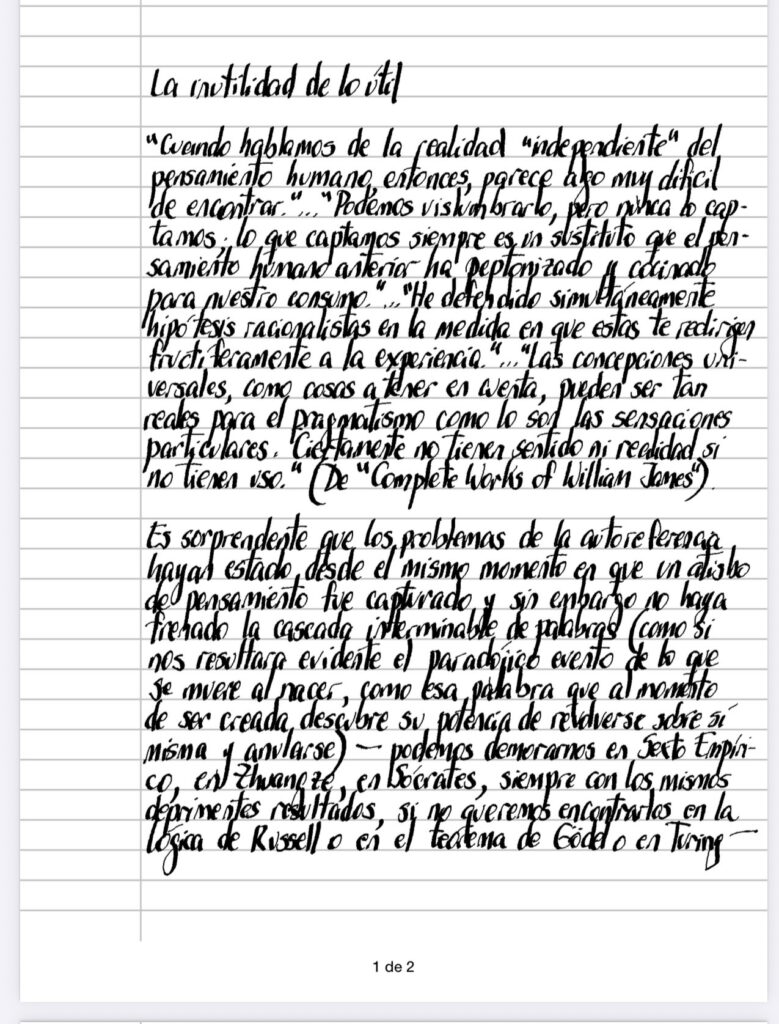 La inutilidad de lo útil
"Cuando hablamos de la realidad "independiente" del
pensamiento humano, entonces, parece algo muy difícil
de encontrar."..."Podemos vislumbrarlo, pero nunca lo cap-
tamos; lo que captamos siempre es un sustituto que el pen-
samiento humano anterior ha peptonizado y cocinado
para nuestro consumo."..."He defendido simultáneamente
hipótesis racionalistas en la medida en que estas te redirigen
fructíferamente a la experiencia."..."Las concepciones uni-
versales, como cosas a tener en cuenta, pueden ser tan
reales para el pragmatismo como lo son las sensaciones
particulares. Ciertamente no tienen sentido ni realidad si
no tienen uso." (De "Complete Works of William James")
Es sorprendente que los problemas de la autoreferencia
hayan estado desde el mismo momento en que un atisbo
de pensamiento fue capturado y sin embargo no haya
frenado la cascada interminable de palabras (como si
nos resultara evidente el paradójico evento de lo que
se muere al nacer, como esa palabra que al momento
de ser creada descubre su potencia de revolverse sobre sí
misma y anularse) — podemos demorarnos en Sexto Empíri-
co, en Zhuangze, en Sócrates, siempre con los mismos
deprimentes resultados, si no queremos encontrarlos en la
lógica de Russell o en el teorema de Gödel o en Turing —
1 de 2